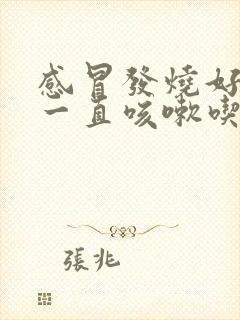 感冒發燒好
一直咳嗽喫
張兆